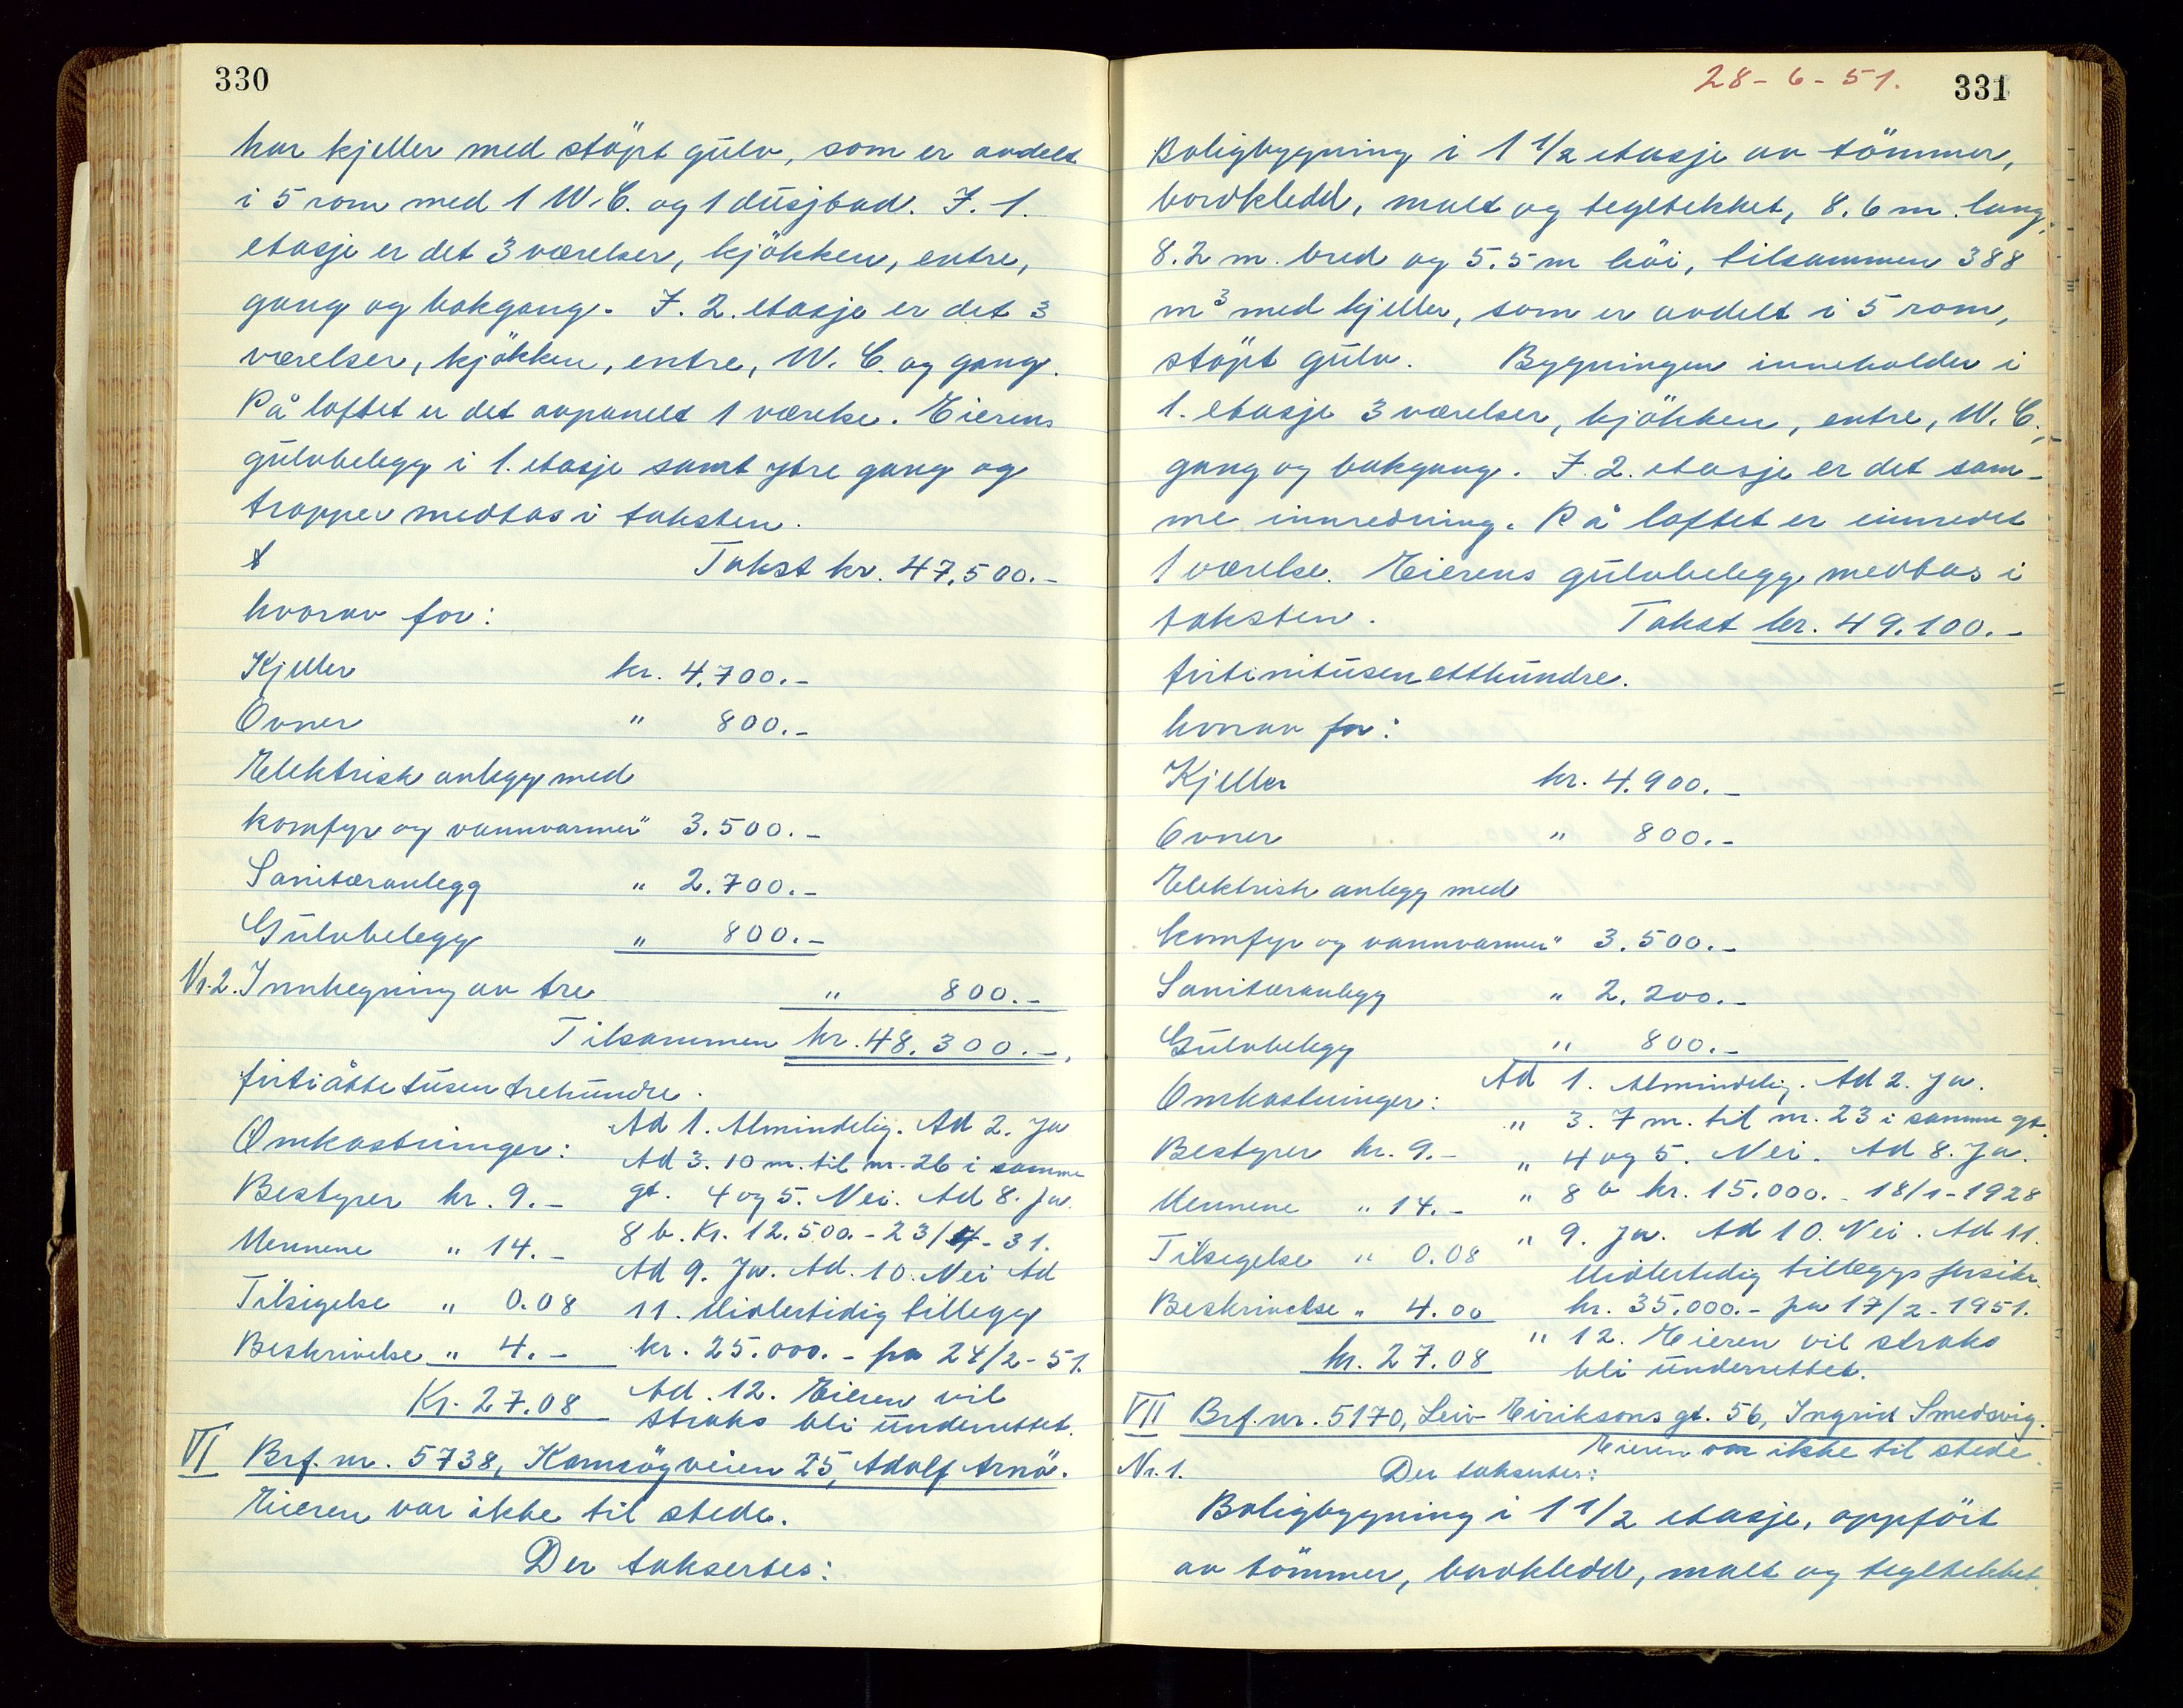 330
har kjeller med stöpt gulv, som er avdelt
i 5 rom med 1 W.C. og 1 dusjbad. I. 1.
etasje er det 3 værelser, kjökken, entre,
gang og bakgang. I. 2. etasje er det 3
værelser, kjökken, entre, W.C. og gang.
På loftet er det avpanelt 1 værelse. Eierens
gulvbelegg i 1. etasje samt ytre gang og
trapper medtas i taksten.
Takst kr. 47,500.-
hvorav for:
Kjeller kr. 4.700.-
Ovner " 800.-
Elektrisk anlegg med
komfyr og vannvarmer " 3.500.-
Sanitæranlegg " 2.700.-
Gulvbelegg " 800.-
Nr. 2. Innhegning av tre " 800.-
Tilsammen kr. 48.300.-.
förtiåtte tusen trehundre.
Omkostninger:
Bestyrer kr. 9.-
Mennene " 14.-
Tilsigelse " 0.08
Beskrivelse " 4.-
Kr. 27.08
Ad 1. Almindelig. Ad 2. Ja
Ad 3. 10 m. til nr. 26 i samme
gt. 4 og 5. Nei. Ad 8. Ja.
8 b. Kr. 12.500.- 23/4-31.
Ad 9. Ja. Ad. 10. Nei Ad
11. Midlertidig tillegg
kr. 25.000.- fra 24/2-51.
Ad. 12. Eieren vil
straks bli underrettet.
VI Brf. nr. 5738, Kamsögveien 25, Adolf Arnö.
Eieren var ikke til stede.
Der taksertes:
28-6-51. 331
Boligbygning i 1 1/2 etasje av tömmer,
bordkledd, malt og tegltekket, 8.6 m. lang,
8.2 m. bred og 5.5 m höi, tilsammen 388
m³ med kjeller, som er avdelt i 5 rom,
stöpt gulv. Bygningen inneholder i
1. etasje 3 værelser, kjökken, entre, W.C.,
gang og bakgang. I. 2. etasje er det sam-
me innredning. På loftet er innredet
1 værelse. Eierens gulvbelegg medtas i
taksten. Takst kr. 49.100.-
förtinitusenetthundre.
hvorav for:
Kjeller kr. 4.900.-
Ovner " 800.-
Elektrisk anlegg med
komfyr og vannvarmer " 3.500.-
Sanitæranlegg " 2.200.-
Gulvbelegg " 800.-
Omkostninger:
Bestyrer kr. 9.-
Mennene " 14.-
Tilsigelse " 0.08
Beskrivelse " 4.00
kr. 27.08
Ad 1. Almindelig. Ad 2. Ja.
" 3. 7 m. til nr. 23 i samme gt.
" 4 og 5. Nei. Ad 8. Ja.
" 8 b kr. 15.000.- 18/1-1928
" 9. Ja. Ad 10. Nei. Ad 11.
Midlertidig tilleggs forsikr.
kr. 35.000.- fra 17/2-1951.
" 12. Eieren vil straks
bli underrettet.
VII Brf. nr. 5170, Leiv Eiriksons gt. 56, Ingrid Smedsvig.
Eieren var ikke til stede.
Nr. 1. Der takseres:
Boligbygning i 1 1/2 etasje, oppfört
av tömmer, bordkledd, malt og tegltekket.